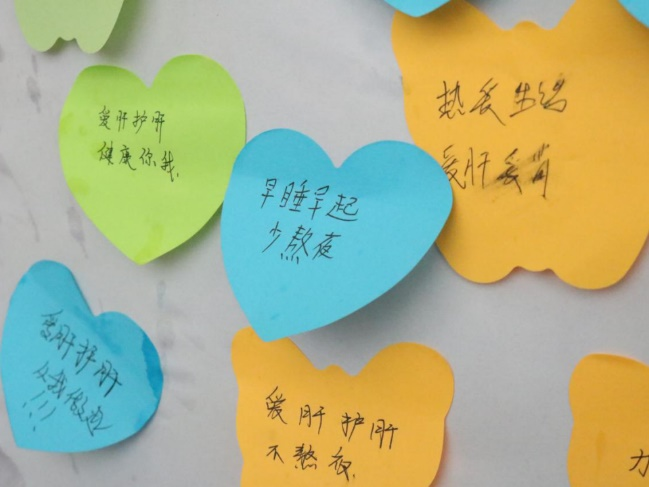 爱肝护肝
健康你我.
早睡早起
少熬夜
热爱生活
爱肝爱胃
爱肝护肝
从我做起
!!!
爱肝护肝
不熬夜.